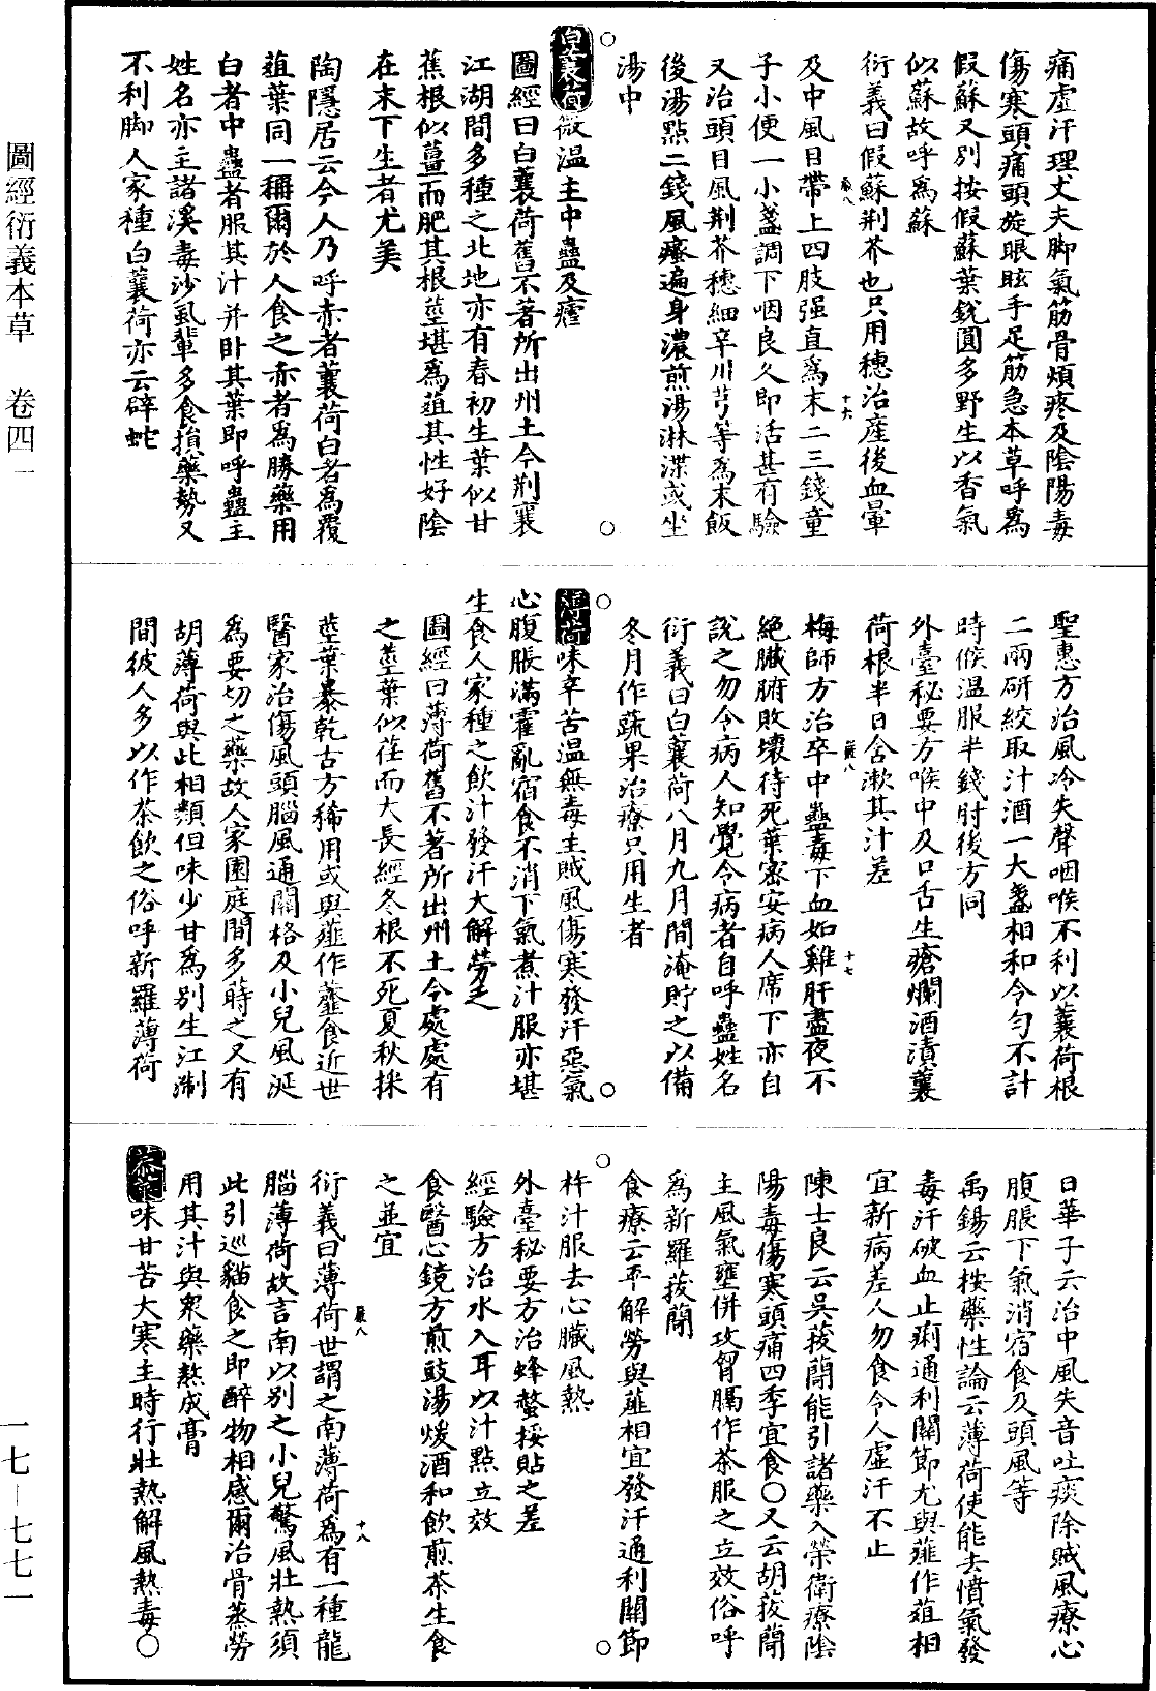 痛虚汗理丈夫脚氣筋骨煩疼及陰陽毒
傷寒頭痛頭旋眼眩手足筋急本草呼爲
假蘇又別按假蘇葉銳圓多野生以香氣
似蘇故呼爲蘇
衍義曰假蘇荆芥也只用穗治産後血暈
及中風目帶上四肢强直爲末二三錢童
子小便一小盞調下咽良久即活甚有驗
又治頭目風荆芥穗細辛川芎等爲末飯
後湯點二錢風瘙遍身濃煎湯淋渫或坐
湯中
白蘘荷微温主中蠱及瘧
圖經曰白蘘荷舊不著所出州土今荆襄
江湖間多種之北地亦有春初生葉似甘
蕉根似薑而肥其根莖堪爲葅其性好陰
在木下生者尤美
陶隱居云今人乃呼赤者蘘荷白者為覆
葅葉同一稱爾於人食之赤者爲勝藥用
白者中蠱者服其汁并卧其葉即呼蠱主
姓名亦主諸溪毒沙虱輩多食損藥勢又
不利脚人家種白蘘荷亦云辟蛇
聖惠方治風冷失聲咽喉不利以蘘荷根
二兩研絞取汁酒一大盞相和令匀不計
時候温服半錢肘後方同
外臺秘要方喉中及口舌生瘡爛酒漬蘘
荷根半日含漱其汁差
梅師方治卒中蠱毒下血如雞肝晝夜不
絶臟腑敗壞待死葉密安病人席下亦自
説之勿令病人知覺令病者自呼蠱姓名
衍義曰白蘘荷八月九月間淹貯之以備
冬月作蔬果治療只用生者
薄荷味辛苦温無毒主賊風傷寒發汗惡氣
心腹脹滿霍亂宿食不消下氣煮汁服亦堪
生食人家種之飲汁發汗大解勞乏
圖經曰薄荷舊不著所出州土今處處有
之莖葉似荏而大長經冬根不死夏秋採
莖葉暴乾古方稀用或與薤作虀食近世
醫家治傷風頭腦風通關格及小兒風涎
爲要切之藥故人家園庭間多蒔之又有
胡薄荷與此相類但味少甘爲別生江淛
間彼人多以作茶飲之俗呼新羅薄荷
日華子云治中風失音吐痰除賊風療心
腹脹下氣消宿食及頭風等
禹錫云按藥性論云薄荷使能去憤氣發
毒汗破血止痢通利關節尤與薤作葅相
宜新病差人勿食令人虚汗不止
陳士良云吳菝䕡能引諸藥入榮衛療陰
陽毒傷寒頭痛四季宜食○又云胡菝䕡
主風氣壅併攻胷膈作茶服之立效俗呼
爲新羅菝䕡
食療云平解勞與薤相宜發汗通利關節
杵汁服去心臟風熱
外臺秘要方治蜂螫挼貼之差
經驗方治水入耳以汁點立效
食醫心鏡方煎豉湯煖酒和飲煎茶生食
之並宜
衍義曰薄荷世謂之南薄荷爲有一種龍
腦薄荷故言南以別之小兒驚風壯熱須
此引巡貓食之即醉物相感爾治骨蒸勞
用其汁與衆藥熬成膏
味甘苦大寒主時行壯熱解風熱毒○
圖經衍義本草　卷四一
一七—七七一